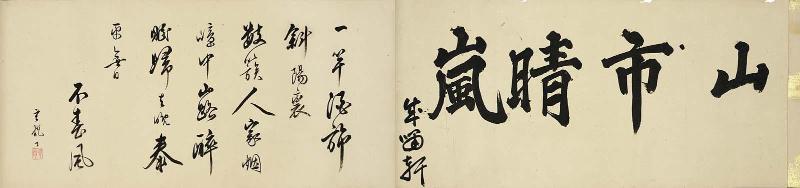 山市晴嵐
一竿酒旆
斜陽裏
數簇人家烟
嶂中山路醉
眠歸去晚泰
平無日
不春風